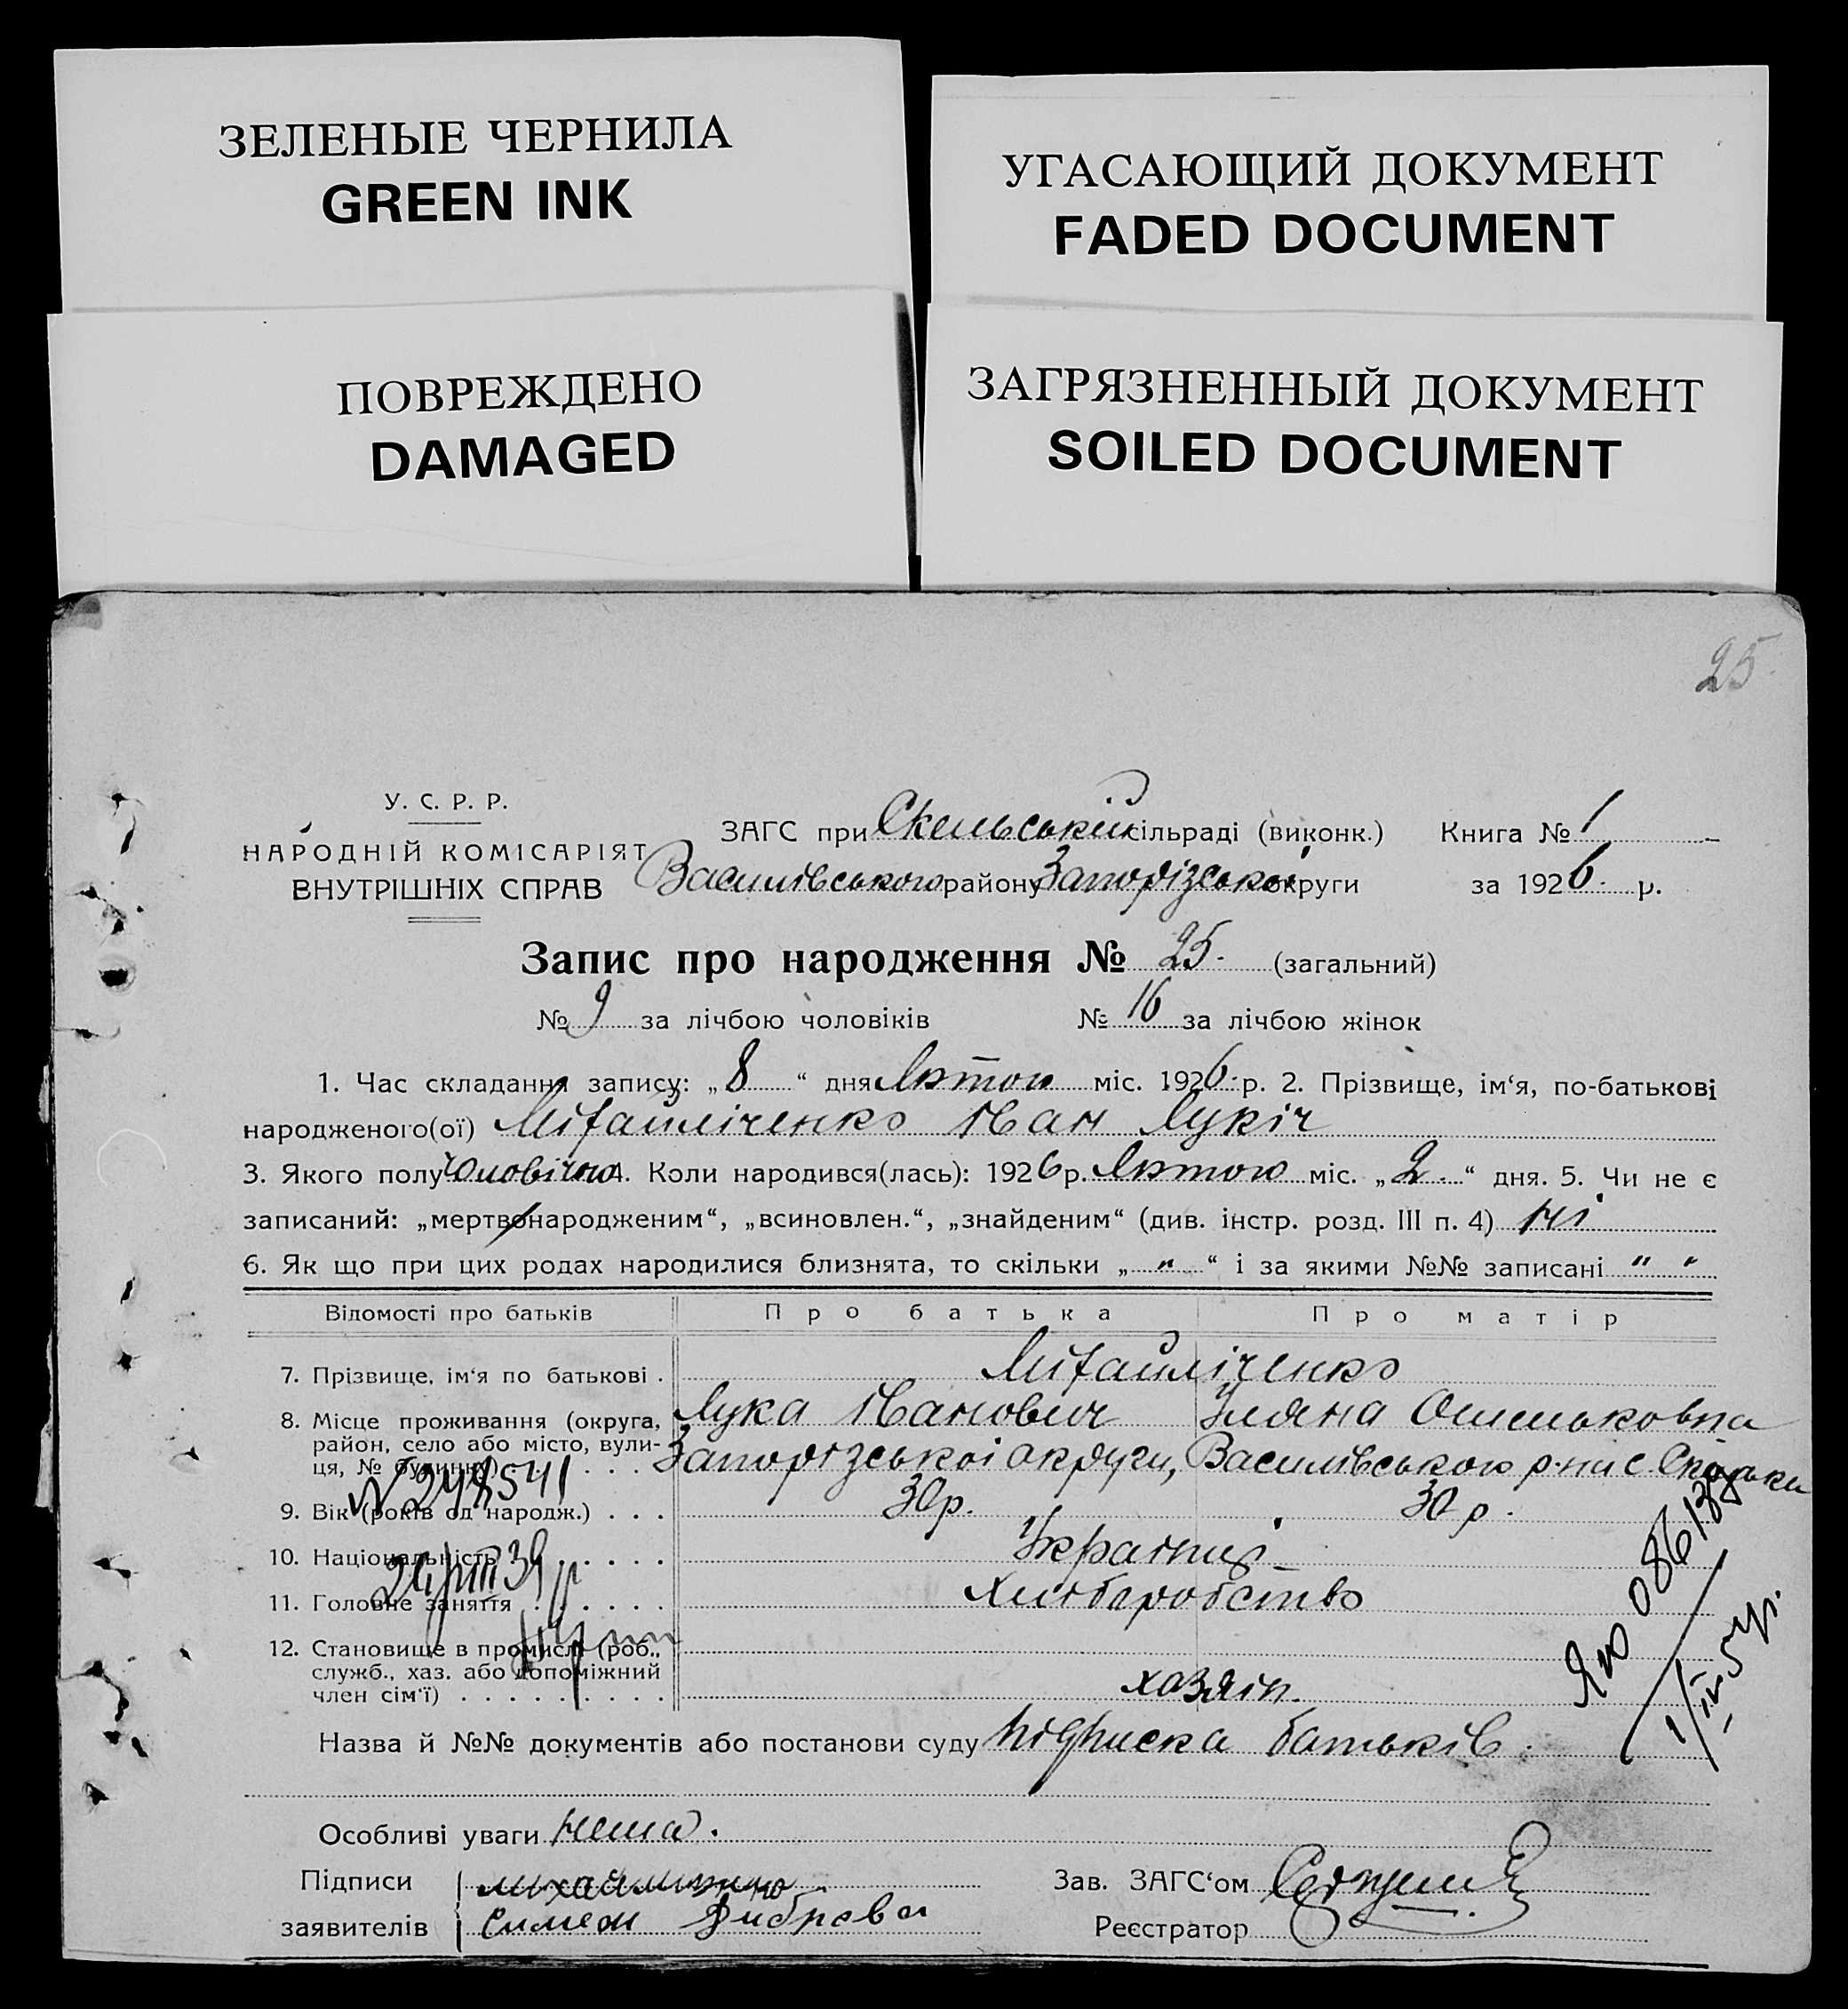 ЗЕЛЕНЫЕ ЧЕРНИЛА
GREEN INK
УГАСАЮЩИЙ ДОКУМЕНТ
FADED DOCUMENT
ПОВРЕЖДЕНО
DAMAGED
ЗАГРЯЗНЕННЫЙ ДОКУМЕНТ
SOILED DOCUMENT
25
У. С. Р. Р.
НАРОДНІЙ КОМІСАРІЯТ
ВНУТРІШНІХ СПРАВ
ЗАГС при Скельській сільраді (виконк.) Книга № 1
Василівського району Запорізської округи за 1926 р.
Запис про народження № 25. (загальний)
№ 9 за лічбою чоловіків № 16 за лічбою жінок
1. Час складання запису: „8“ дня Лютого міс. 1926 р. 2. Прізвище, ім‘я, по-батькові
народженого(ої) Міхайліченко Іван Лукіч
3. Якого полу Чоловічого 4. Коли народився(лась): 1926 р. Лютого міс. „2.“ дня. 5. Чи не є
записаний: „мертвонародженим“, „всиновлен.“, „знайденим“ (див. інстр. розд. III п. 4) ні
6. Як що при цих родах народилися близнята, то скільки „ " “ і за якими №№ записані " "
Відомості про батьків Про батька Про матір
7. Прізвище, ім‘я по батькові . Міхайліченко
Лука Іванович
8. Місце проживання (округа,
район, село або місто, вули-
ця, № будинку) . . . . Запорізської округи, Василівського р-ну с.
№ 248541
9. Вік (років од народж.) . . . 30 р. 30 р.
10. Національність . . . . . Україниці
11. Головне заняття . . . . . Хліборобство
12. Становище в промислі (роб.,
служб., хаз. або допоміжний
член сім‘ї) . . . . . . . . . хазяін.
Назва й №№ документів або постанови суду підписка батьків.
Особливі уваги нема.
Підписи
заявителів
Зав. ЗАГС‘ом
Реєстратор